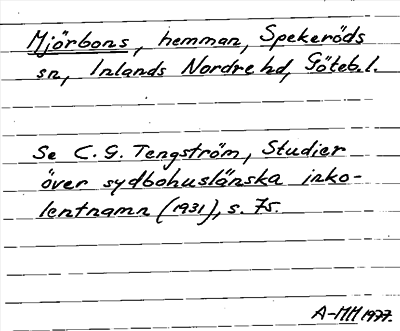 Mjörbons, hemman, Spekeröds
sn, Inlands Nordre hd, Göteb. l.
Se C. G. Tengström, Studier
över sydbohuslänska inko-
lentnamn (1931), s. 75.
A-MM 1977.